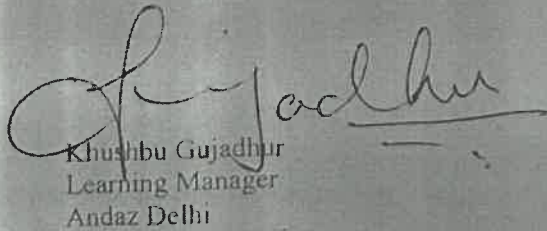 Gujadhur
Khushbu Gujadhur
Learning Manager
Andaz Delhi